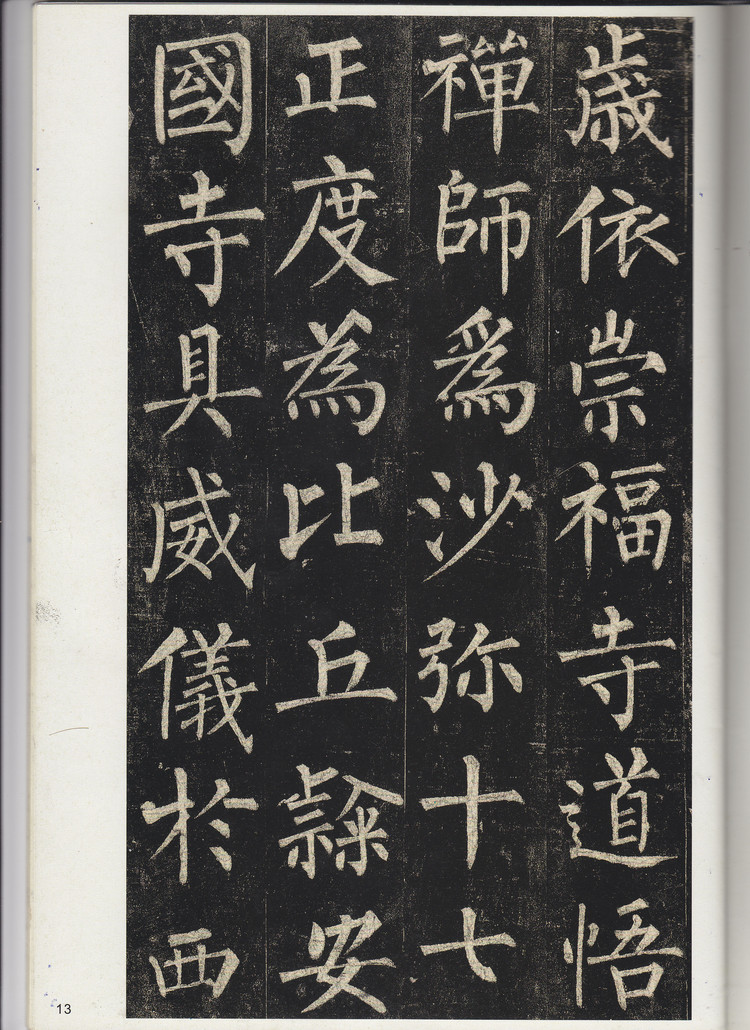 歲依崇福寺道悟
禪師爲沙弥十七
正度為比丘𥘉安
國寺具威儀於西
13